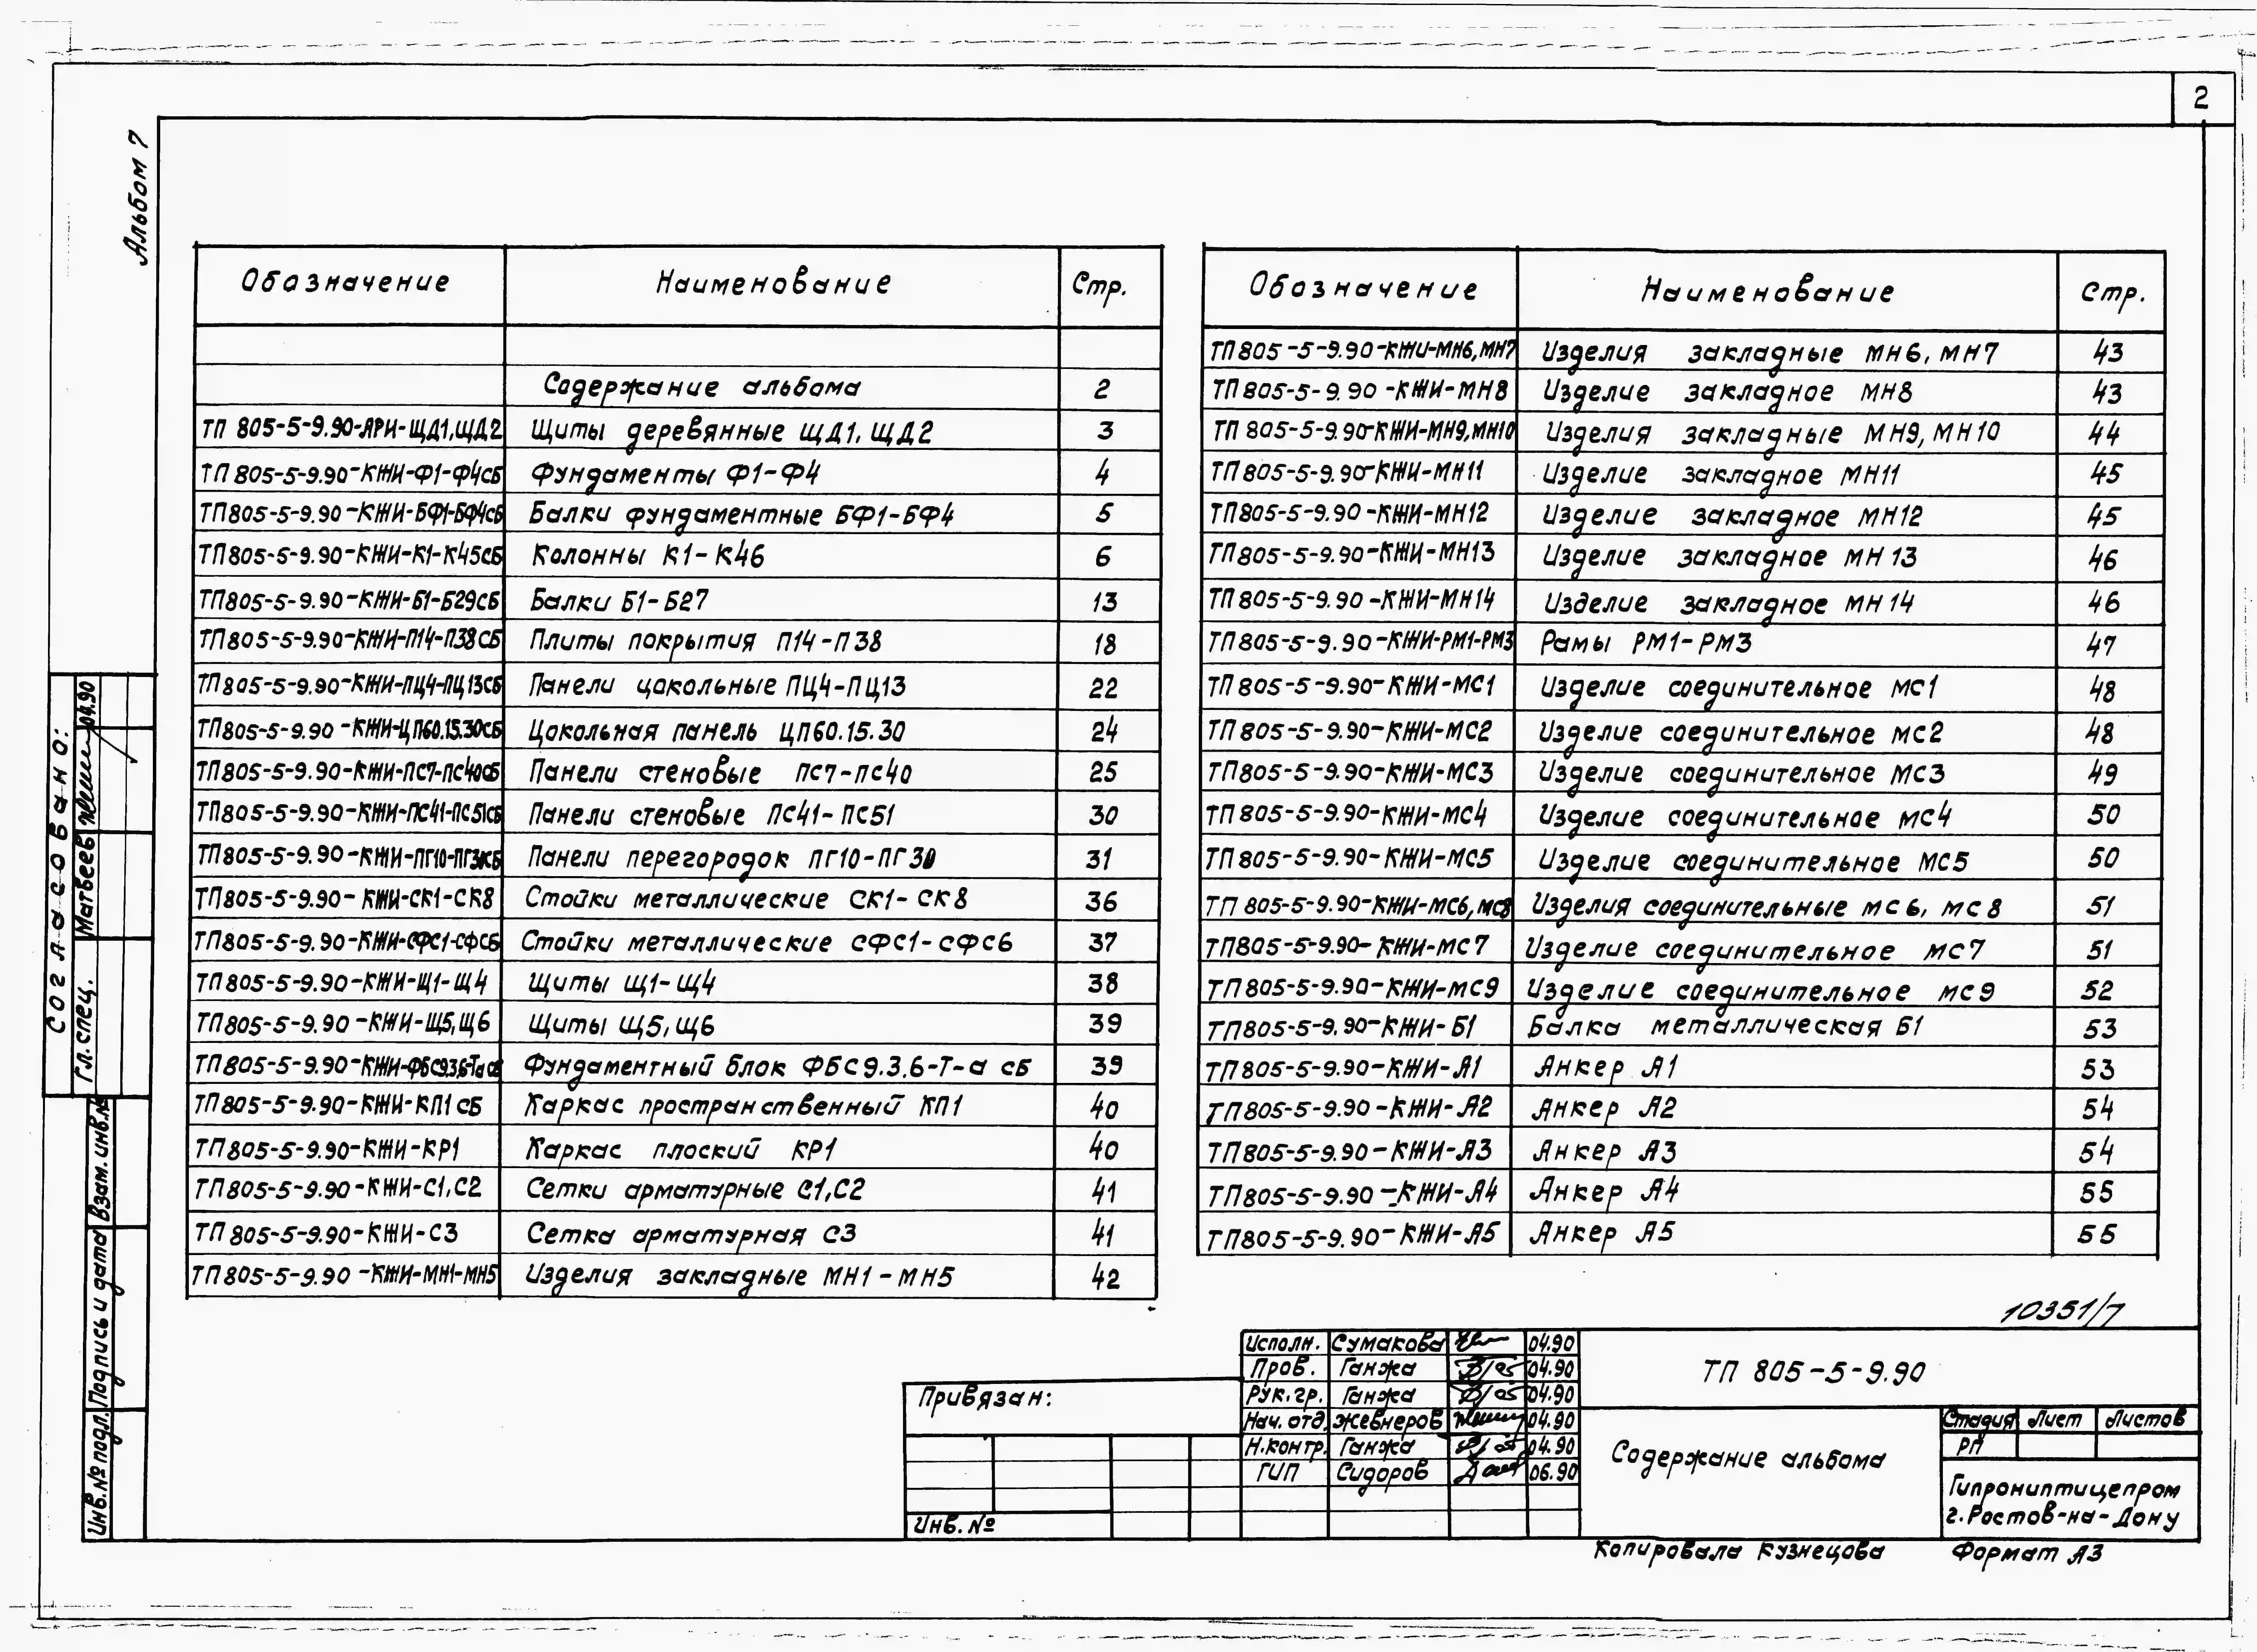 2
Альбом 7
Обозначение Наименование Стр.
Содержание альбома 2
ТП 805-5-9.90-АРИ-ЩД1,ЩД2 Щиты деревянные ЩД1, ЩД2 3
ТП 805-5-9.90-КЖИ-Ф1-Ф4СБ Фундаменты Ф1-Ф4 4
ТП805-5-9.90-КЖИ-БФ1-БФ4СБ Балки фундаментные БФ1-БФ4 5
ТП805-5-9.90-КЖИ-К1-К45СБ Колонны К1-К46 6
ТП805-5-9.90-КЖИ-Б1-Б29СБ Балки Б1-Б27 13
ТП805-5-9.90-КЖИ-П14-П38СБ Плиты покрытия П14-П38 18
ТП805-5-9.90-КЖИ-ПЦ4-ПЦ13СБ Панели цокольные ПЦ4-ПЦ13 22
ТП805-5-9.90-КЖИ-ЦП60.15.30СБ Цокольная панель ЦП60.15.30 24
ТП805-5-9.90-КЖИ-ПС7-ПС40СБ Панели стеновые ПС7-ПС40 25
ТП805-5-9.90-КЖИ-ПС41-ПС51СБ Панели стеновые ПС41-ПС51 30
ТП805-5-9.90-КЖИ-ПГ10- Панели перегородок ПГ10-ПГ30 31
ТП805-5-9.90-КЖИ-СК1-СК8 Стойки металлические СК1-СК8 36
ТП805-5-9.90-КЖИ-СФС1-СФС6 Стойки металлические СФС1-СФС6 37
ТП805-5-9.90-КЖИ-Щ1-Щ4 Щиты Щ1-Щ4 38
ТП805-5-9.90-КЖИ-Щ5,Щ6 Щиты Щ5,Щ6 39
ТП805-5-9.90-КЖИ-ФБС9.3.6-Та СБ Фундаментный блок ФБС9.3.6-Т-а СБ 39
ТП805-5-9.90-КЖИ-КП1СБ Каркас пространственный КП1 40
ТП805-5-9.90-КЖИ-КР1 Каркас плоский КР1 40
ТП805-5-9.90-КЖИ-С1,С2 Сетки арматурные С1,С2 41
ТП805-5-9.90-КЖИ-С3 Сетка арматурная С3 41
ТП805-5-9.90-КЖИ-МН1-МН5 Изделия закладные МН1-МН5 42
Обозначение Наименование Стр.
ТП805-5-9.90-КЖИ-МН6,МН7 Изделия закладные МН6, МН7 43
ТП805-5-9.90-КЖИ-МН8 Изделие закладное МН8 43
ТП 805-5-9.90-КЖИ-МН9,МН10 Изделия закладные МН9, МН10 44
ТП805-5-9.90-КЖИ-МН11 Изделие закладное МН11 45
ТП805-5-9.90-КЖИ-МН12 Изделие закладное МН12 45
ТП805-5-9.90-КЖИ-МН13 Изделие закладное МН13 46
ТП805-5-9.90-КЖИ-МН14 Изделие закладное МН14 46
ТП805-5-9.90-КЖИ-РМ1-РМ3 Рамы РМ1-РМ3 47
ТП805-5-9.90-КЖИ-МС1 Изделие соединительное МС1 48
ТП805-5-9.90-КЖИ-МС2 Изделие соединительное МС2 48
ТП805-5-9.90-КЖИ-МС3 Изделие соединительное МС3 49
ТП805-5-9.90-КЖИ-МС4 Изделие соединительное МС4 50
ТП805-5-9.90-КЖИ-МС5 Изделие соединительное МС5 50
ТП 805-5-9.90-КЖИ-МС6, МС8 Изделия соединительные МС6, МС8 51
ТП805-5-9.90-КЖИ-МС7 Изделие соединительное МС7 51
ТП805-5-9.90-КЖИ-МС9 Изделие соединительное МС9 52
ТП805-5-9.90-КЖИ-Б1 Балка металлическая Б1 53
ТП805-5-9.90-КЖИ-А1 Анкер А1 53
ТП805-5-9.90-КЖИ-А2 Анкер А2 54
ТП805-5-9.90-КЖИ-А3 Анкер А3 54
ТП805-5-9.90-КЖИ-А4 Анкер А4 55
ТП805-5-9.90-КЖИ-А5 Анкер А5 55
Согласовано:
Гл. спец. Матвеев 04.90
Инв.№ подл. Подпись и дата Взам. инв.№
10351/7
Привязан:
Инв. №
Исполн. Сумакова 04.90
Пров. Ганжа 04.90
Рук. гр. Ганжа 04.90
Нач. отд. Жевнеров 04.90
Н.контр. Ганжа 04.90
ГИП Сидоров 06.90
ТП 805-5-9.90
Содержание альбома
Стадия Лист Листов
РП
Гипрониптицепром
г.Ростов-на-Дону
Копировала Кузнецова Формат А3